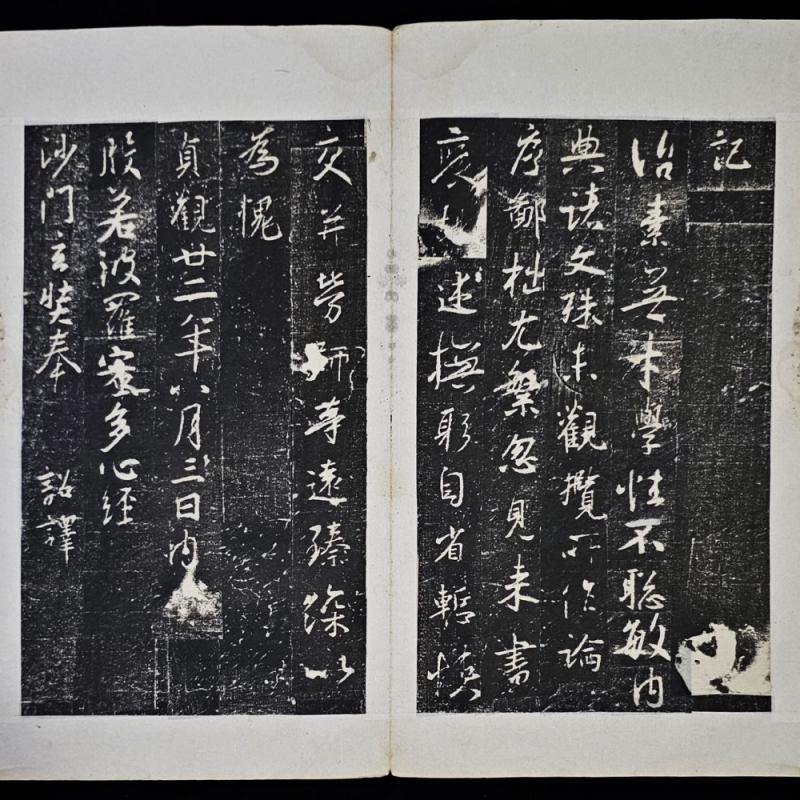 記
治素無才學性不聰敏內
典諸文殊未觀攬所作論
序鄙拙尤繁忽見來書
褒 述撫躬自省慙悚
交并勞師等遠臻深以
為愧
貞觀廿二年八月三日內
般若波羅蜜多心經
沙門玄奘奉 詔譯